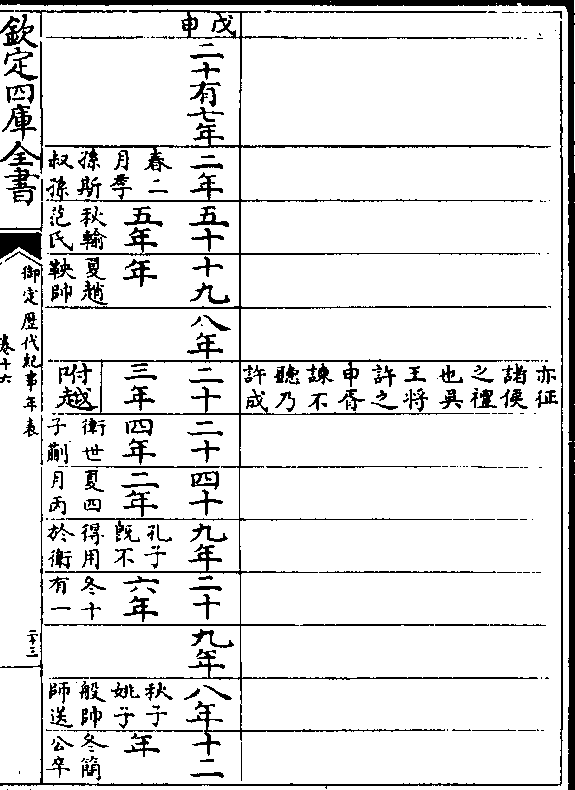 亦征諸侯之禮也吳王將許之申胥諫不聽乃許成
戊申
二十有七年
二年 春二月季孫斯叔孫
五十五年 秋輸范氏
十九年 夏趙鞅帥
八年
二十三年 附越
二十四年 衛世子蒯
四十二年 夏四月丙
九年 孔子既不得用於衛
二十六年 冬十有一
九年
八年 秋子姚子般帥師送
十二年 冬簡公卒
欽定四庫全書
御定歷代紀事年表
卷十六
二十三